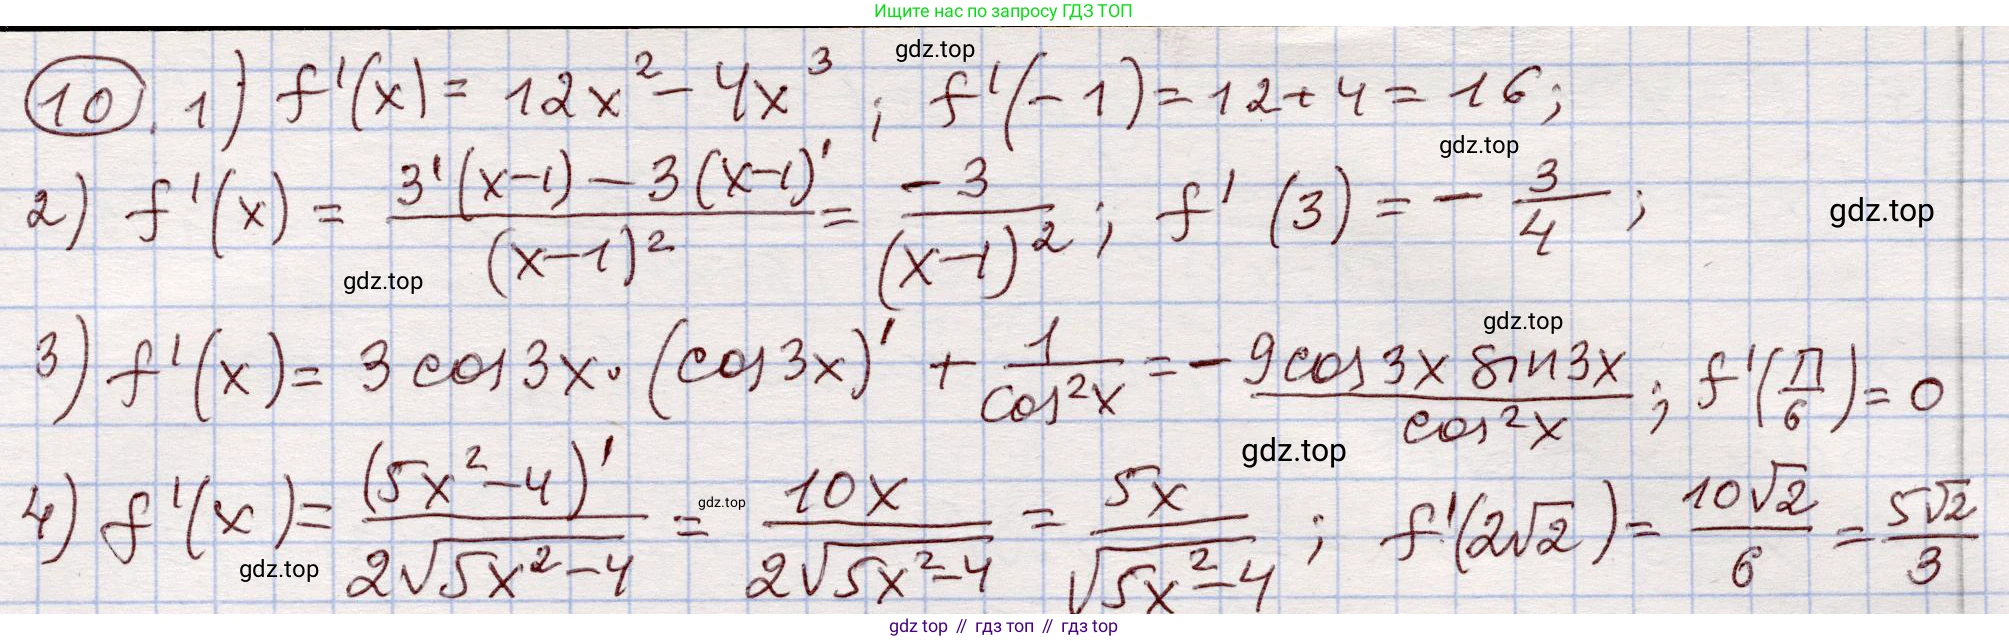 Ищите нас по запросу ГДЗ ТОП
gdz.top
10. 1) f'(x) = 12x² - 4x³ ; f'(-1) = 12 + 4 = 16;
gdz.top
2) f'(x) = (3'(x-1) - 3(x-1)')/(x-1)² = -3/(x-1)² ; f'(3) = - 3/4 ;
gdz.top
gdz.top
gdz.top
3) f'(x) = 3 cos 3x · (cos 3x)' + 1/cos²x = - 9cos 3x sin 3x/cos²x ; f'(π/6) = 0
gdz.top
4) f'(x) = (5x² - 4)'/2√(5x² - 4) = 10x/2√(5x² - 4) = 5x/√(5x² - 4) ; f'(2√2) = 10√2/6 = 5√2/3
gdz.top
gdz.top
gdz top // гдз топ // гдз top